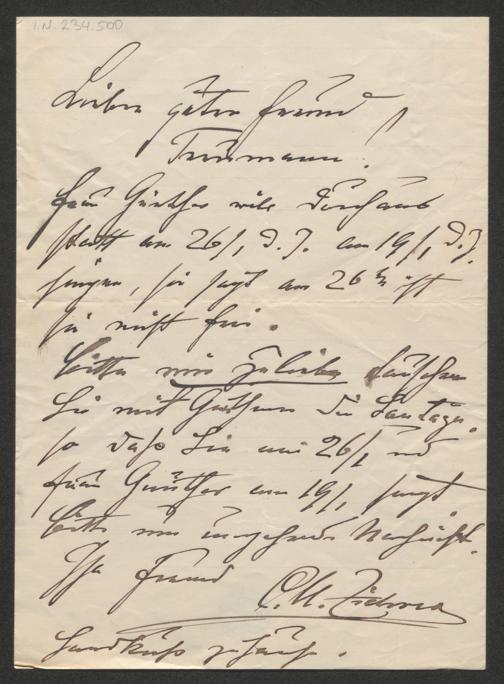 I.N. 234.500
Lieber guter Freund
Treumann!
Frau Günther will durchaus
statt am 26/1 d. J. am 19/1 d. J.
singen, sie sagt am 26ten ist
sie nicht frei.
Bitte mir zu liebe tauschen
Sie mit Günther die Sontage,
so daß Sie am 26/1 und
Frau Günther am 19/1 singt.
Bitte um umgehende Nachricht.
Ihr Freund
C. M. Ziehrer
Handkuss zu Hause.